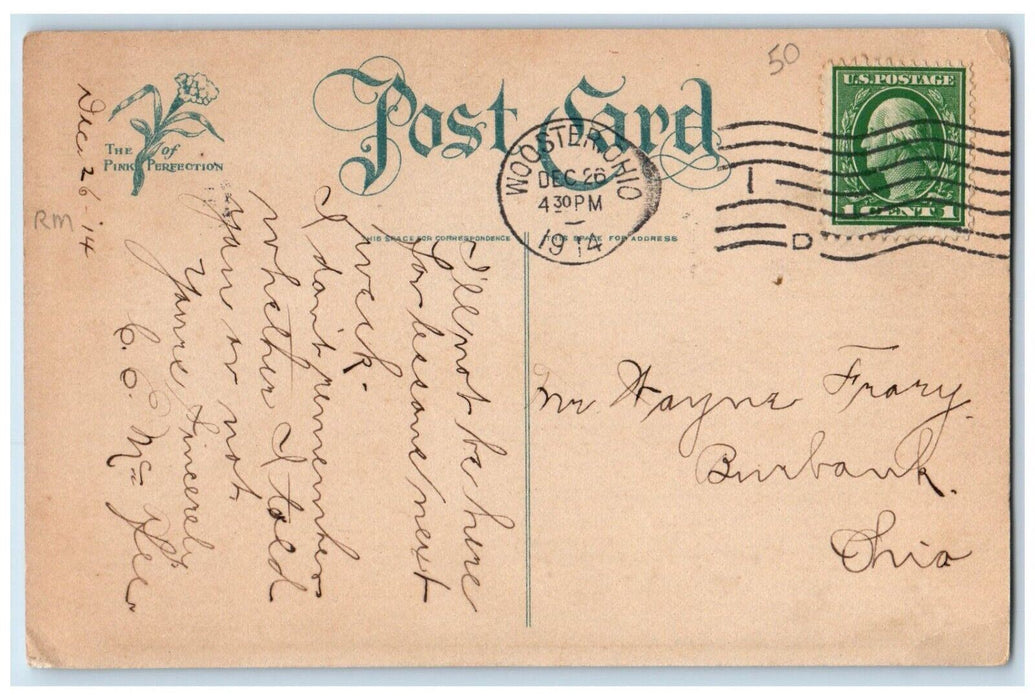 50
U.S. POSTAGE
1 CENT 1
Post Card
THE of
PINK PERFECTION
WOOSTER, OHIO
DEC 26
4 30 PM
1914
1
D
THIS SPACE FOR CORRESPONDENCE
THIS SPACE FOR ADDRESS
RM
Dec. 26 - 14
I'll not be here
for lessons next
week.
I don't remember
whether I told
you or not
Yours Sincerely
C. O. Mc Kee.
Mr Wayne Frary.
Burbank.
Ohio